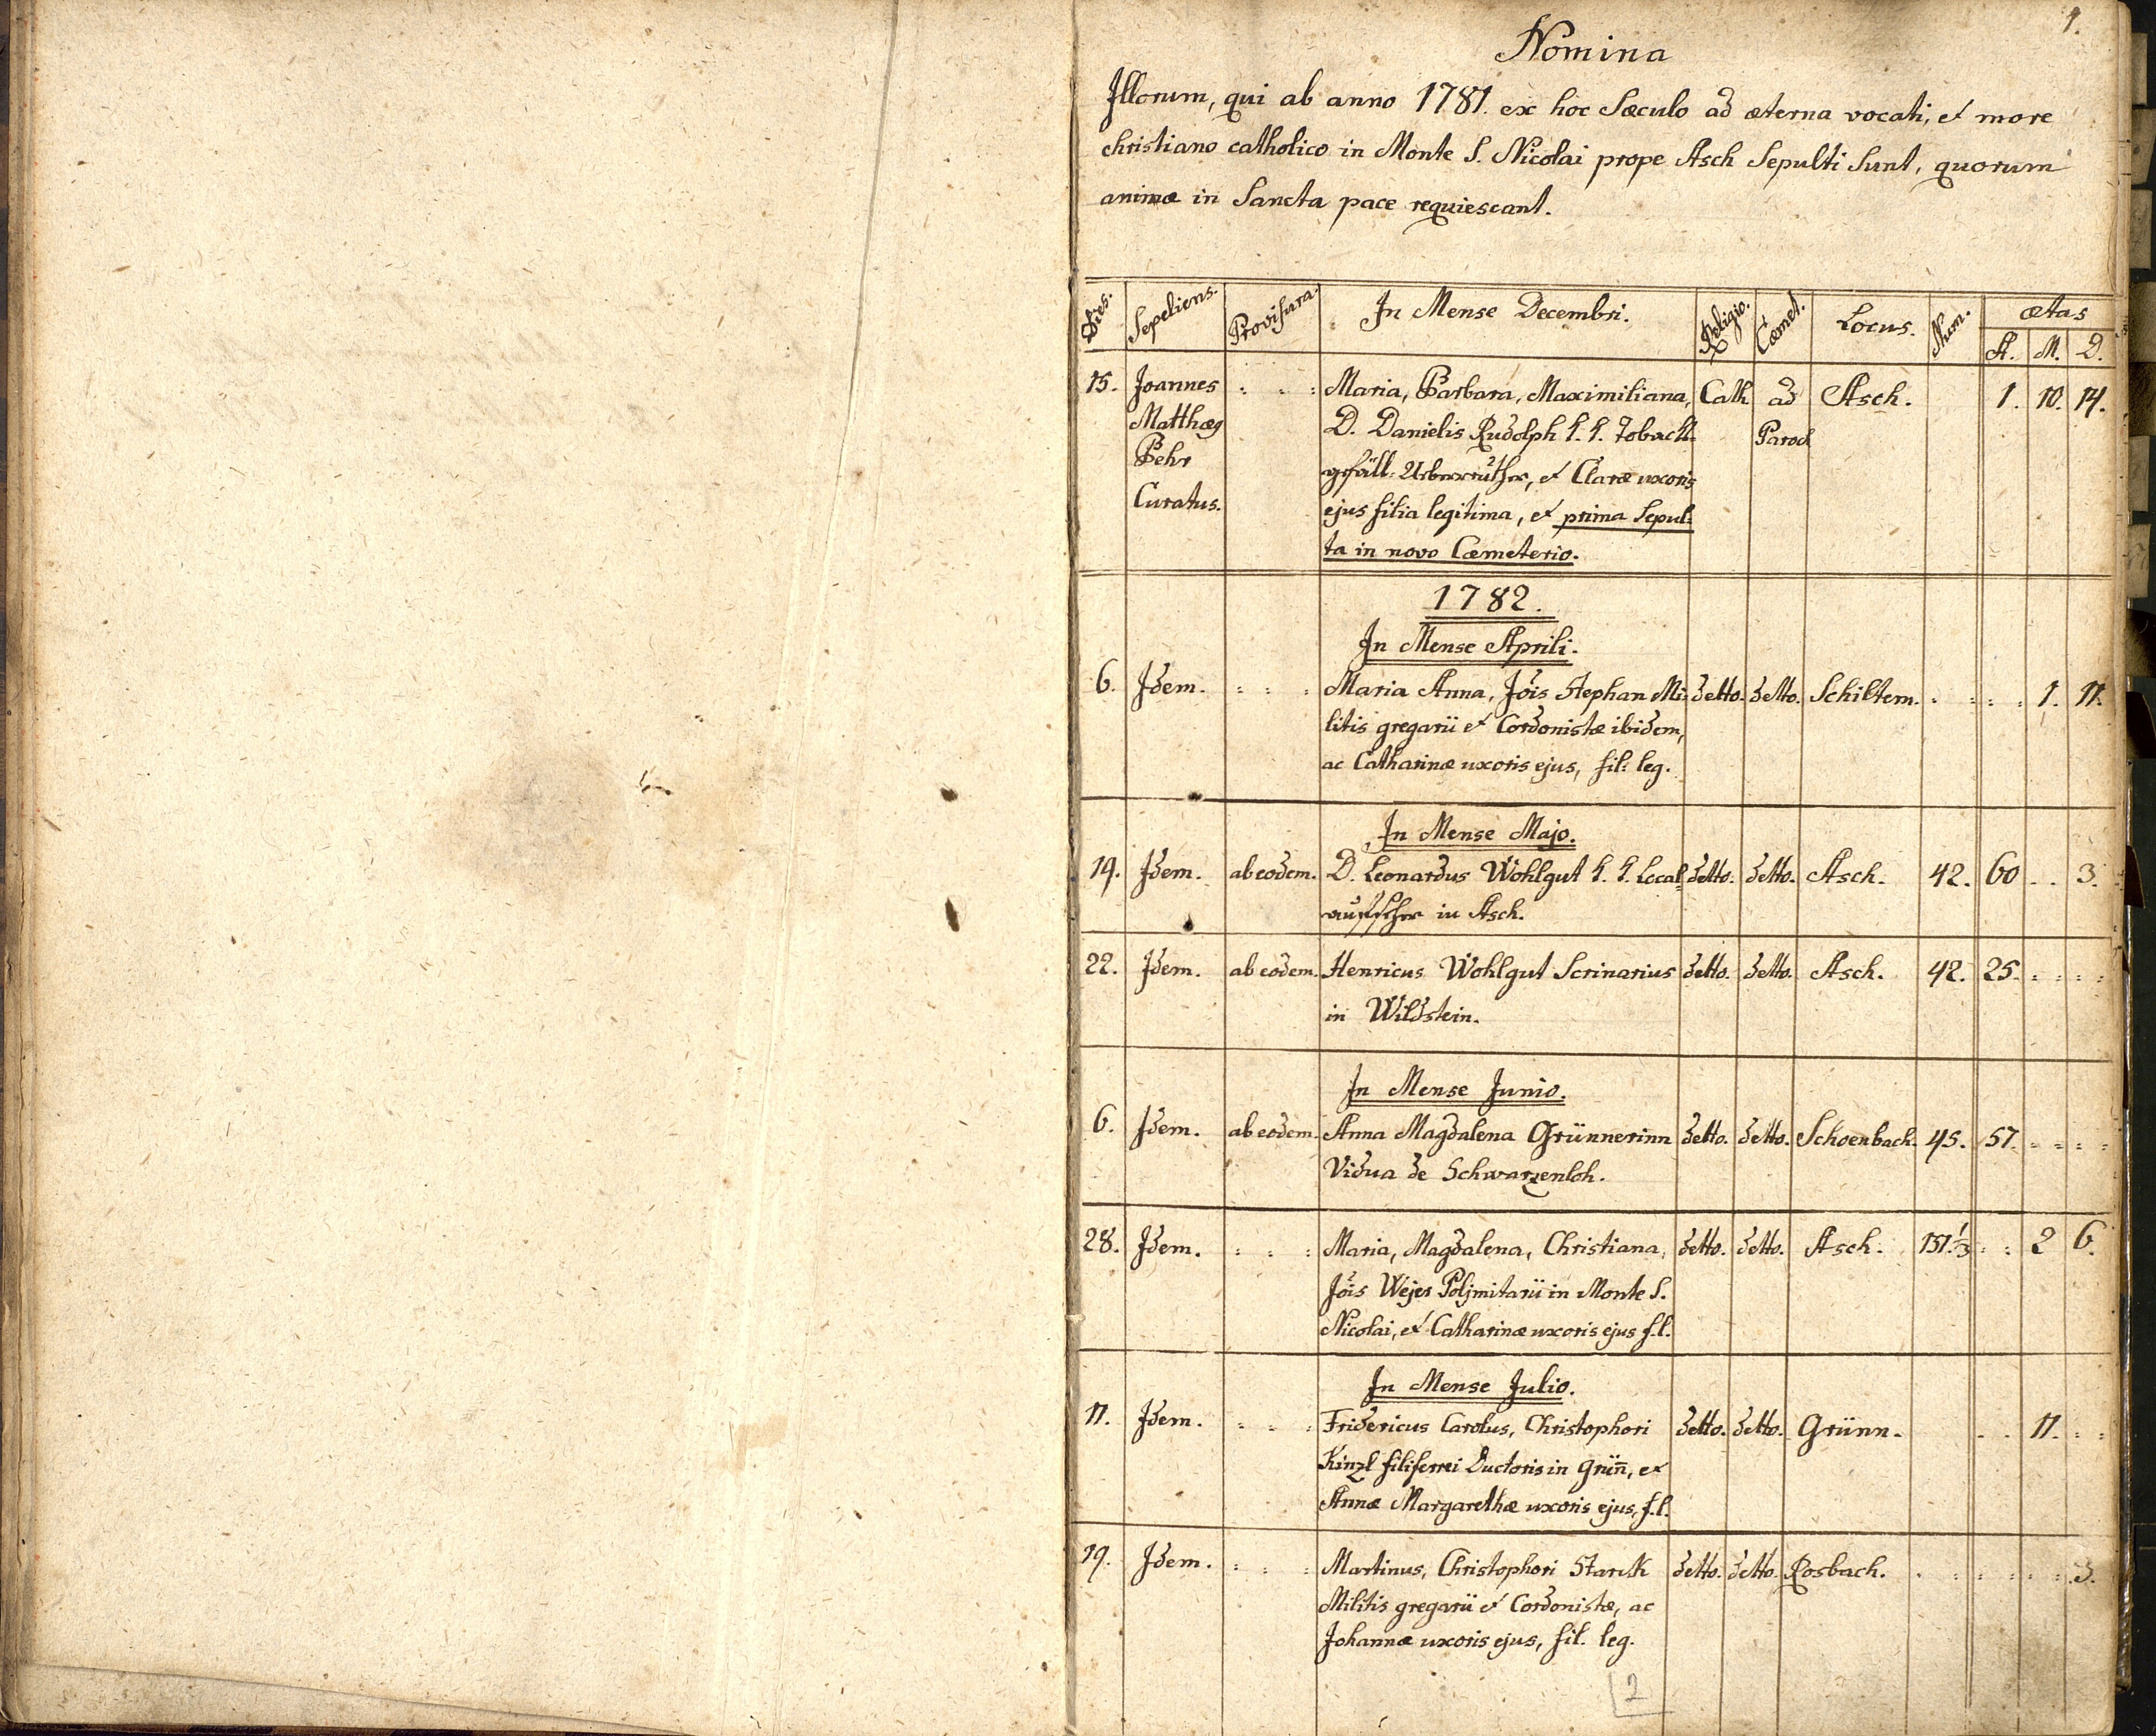 1.
Nomina
Illorum, qui ab anno 1781. ex hoc Sæculo ad æterna vocati, et more
christiano catholico in Monte S. Nicolai prope Asch Sepulti Sunt, quorum
animæ in Sancta pace requiescant.
Dies. Sepeliens. Provisura. In Mense Decembri. Religio. Cæmet. Locus. Num. ætas
A. M. D.
15. Joannes : : : Maria, Barbara, Maximiliana, Cath. ad Asch. 1. 10. 14.
Matthæg D. Danielis Rudolph k. k. Toback- Paroch
Behr gefäll: Überreuther, et Claræ uxoris
Curatus. ejus filia legitima, et prima Sepul=
ta in novo Cæmeterio.
1782.
In Mense Aprili.
6. Idem. : : : Maria Anna, Jois Stephan Mi= detto. detto. Schiltern. : : : : 1. 11.
litis gregarii et Cordonistæ ibidem,
ac Catharinæ uxoris ejus, fil: leg.
In Mense Majo.
19. Idem. ab eodem. D. Leonardus Wohlgut k. k. Local= detto. detto. Asch. 42. 60 . . 3.
aufseher in Asch.
22. Idem. ab eodem. Henricus Wohlgut Scrinarius detto. detto. Asch. 42. 25. : : : :
in Wildstein.
In Mense Junio.
6. Idem. ab eodem. Anna Magdalena Grünnerinn detto. detto. Schoenbach. 45. 57. : : : :
Vidua de Schwarzenloh.
28. Idem. : : : Maria, Magdalena, Christiana, detto. detto. Asch. 151.⅓ : : 2 6.
Jois Wejer Poljmitarii in Monte S.
Nicolai, et Catharinæ uxoris ejus f. l.
In Mense Julio.
11. Idem. : : : Fridericus Carolus, Christophori detto. detto. Grünn. . . 11. : :
Kinzl filiferrei Ductoris in Grün̄, et
Annæ Margarethæ uxoris ejus, f. l.
19. Idem. : : : Martinus, Christophori Starck detto. detto. Rosbach. . : : : : : 3.
Militis gregarii et Cordonistæ, ac
Johannæ uxoris ejus, fil. leg.
2